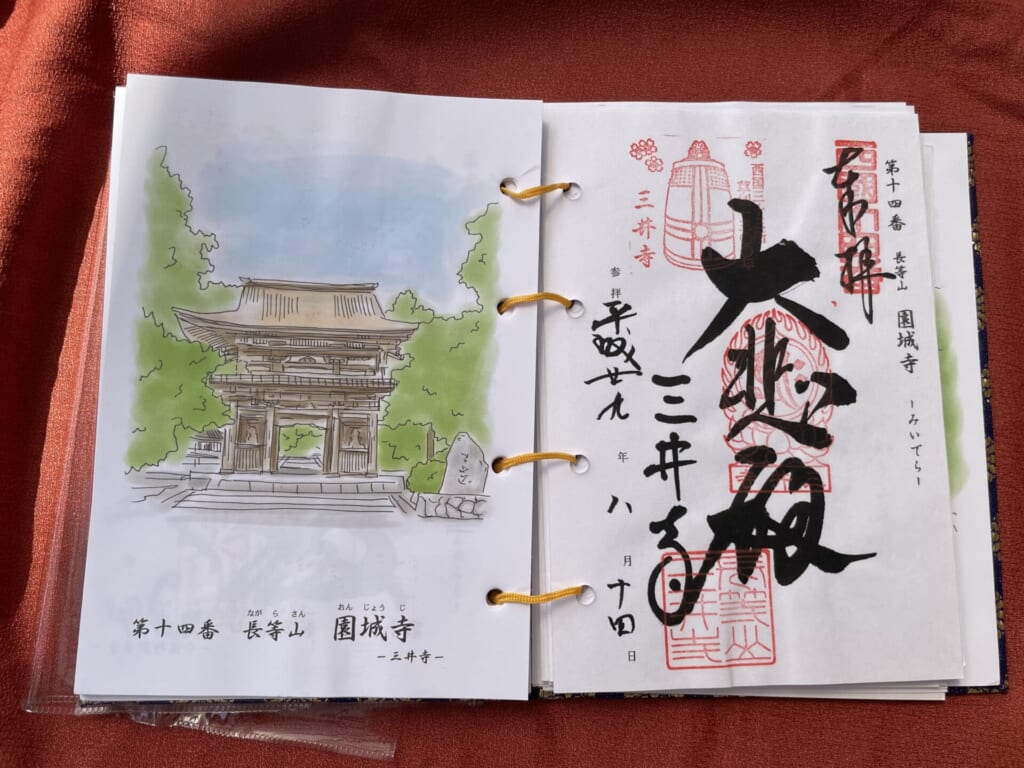 ながらさん おんじょうじ
第十四番 長等山 園城寺
ー三井寺ー
第十四番 長等山 園城寺 ーみいでらー
奉拝
大悲殿
三井寺
三井寺
参拝 平成廿九年八月十四日